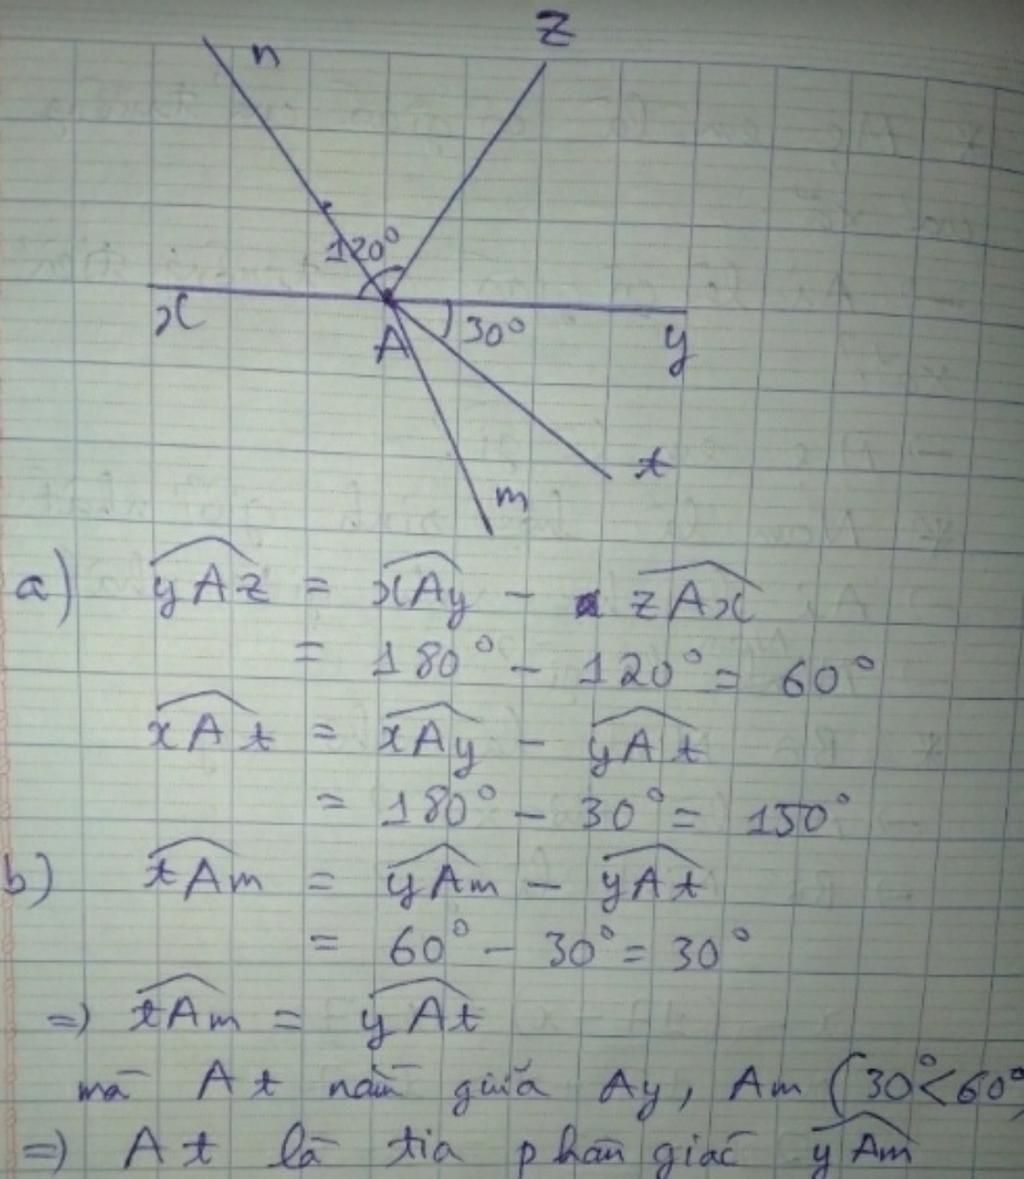 n
z
120°
x
A
30°
y
t
m
a) yAz = xAy - zAx
= 180° - 120° = 60°
xAt = xAy - yAt
= 180° - 30° = 150°
b) tAm = yAm - yAt
= 60° - 30° = 30°
=> tAm = yAt
mà At nằm giữa Ay, Am (30° < 60°)
=> At là tia phân giác yAm